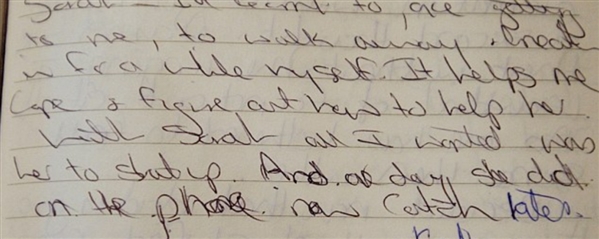 Sarah - I'd learnt to
to me, to walk away.
in for a while myself. It helps me
cope & figure out how to help her.
With Sarah all I wanted was
her to shut up. And one day she did.
on the phone. now Catch later.